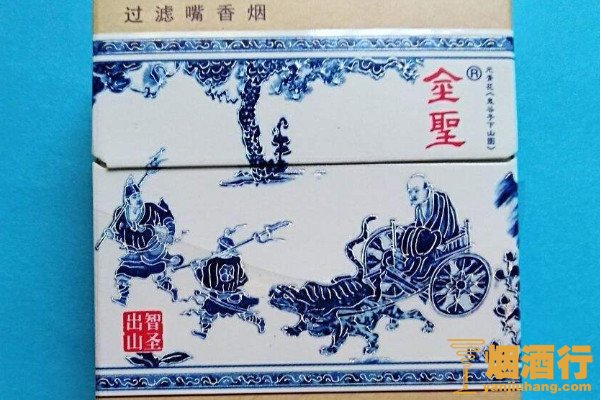 过滤嘴香烟
金聖®
元青花《鬼谷子下山图》
智圣
出山
烟酒行
yanjiuhang.com